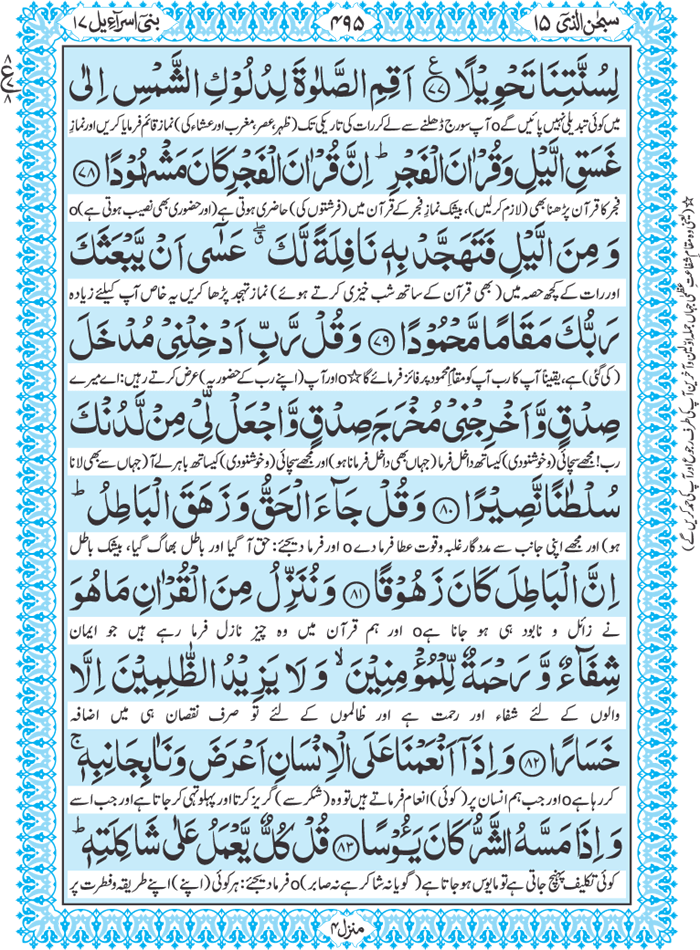 سبحٰن الذی ۱۵
۴۹۵
بنی اسرآءیل ۱۷
لِسُنَّتِنَا تَحْوِیْلًا ﴿۷۷﴾ اَقِمِ الصَّلٰوةَ لِدُلُوْكِ الشَّمْسِ اِلٰی
میں کوئی تبدیلی نہیں پائیں گے o آپ سورج ڈھلنے سے لے کر رات کی تاریکی تک (ظہر، عصر، مغرب اور عشاء کی) نماز قائم فرمایا کریں اور نمازِ
غَسَقِ الَّیْلِ وَ قُرْاٰنَ الْفَجْرِ ؕ اِنَّ قُرْاٰنَ الْفَجْرِ كَانَ مَشْهُوْدًا ﴿۷۸﴾
فجر کا قرآن پڑھنا بھی (لازم کر لیں)، بیشک نمازِ فجر کے قرآن میں (فرشتوں کی) حاضری ہوتی ہے (اور حضوری بھی نصیب ہوتی ہے) o
وَ مِنَ الَّیْلِ فَتَهَجَّدْ بِهٖ نَافِلَةً لَّكَ ۖۗ عَسٰۤی اَنْ یَّبْعَثَكَ
اور رات کے کچھ حصہ میں (بھی قرآن کے ساتھ شب خیزی کرتے ہوئے) نماز تہجد پڑھا کریں یہ خاص آپ کیلئے زیادہ
رَبُّكَ مَقَامًا مَّحْمُوْدًا ﴿۷۹﴾ وَ قُلْ رَّبِّ اَدْخِلْنِیْ مُدْخَلَ
(کی گئی) ہے، یقیناً آپ کا رب آپ کو مقامِ محمود پر فائز فرمائے گا☆ o اور آپ (اپنے رب کے حضور یہ) عرض کرتے رہیں: اے میرے
صِدْقٍ وَّ اَخْرِجْنِیْ مُخْرَجَ صِدْقٍ وَّ اجْعَلْ لِّیْ مِنْ لَّدُنْكَ
رب! مجھے سچائی (و خوشنودی) کیساتھ داخل فرما (جہاں بھی داخل فرمانا ہو) اور مجھے سچائی (و خوشنودی) کیساتھ باہر لے آ (جہاں سے بھی لانا
سُلْطٰنًا نَّصِیْرًا ﴿۸۰﴾ وَ قُلْ جَآءَ الْحَقُّ وَ زَهَقَ الْبَاطِلُ ؕ
ہو) اور مجھے اپنی جانب سے مددگار غلبہ و قوت عطا فرما دے o اور فرما دیجئے: حق آ گیا اور باطل بھاگ گیا، بیشک باطل
اِنَّ الْبَاطِلَ كَانَ زَهُوْقًا ﴿۸۱﴾ وَ نُنَزِّلُ مِنَ الْقُرْاٰنِ مَا هُوَ
نے زائل و نابود ہی ہو جانا ہے o اور ہم قرآن میں وہ چیز نازل فرما رہے ہیں جو ایمان
شِفَآءٌ وَّ رَحْمَةٌ لِّلْمُؤْمِنِیْنَ ۙ وَ لَا یَزِیْدُ الظّٰلِمِیْنَ اِلَّا
والوں کے لئے شفاء اور رحمت ہے اور ظالموں کے لئے تو صرف نقصان ہی میں اضافہ
خَسَارًا ﴿۸۲﴾ وَ اِذَاۤ اَنْعَمْنَا عَلَی الْاِنْسَانِ اَعْرَضَ وَ نَاٰ بِجَانِبِهٖ ۚ
کر رہا ہے o اور جب ہم انسان پر (کوئی) انعام فرماتے ہیں تو وہ (شکر سے) گریز کرتا اور پہلو تہی کر جاتا ہے اور جب اسے
وَ اِذَا مَسَّهُ الشَّرُّ كَانَ یَـُٔوْسًا ﴿۸۳﴾ قُلْ كُلٌّ یَّعْمَلُ عَلٰی شَاكِلَتِهٖ ؕ
کوئی تکلیف پہنچ جاتی ہے تو مایوس ہو جاتا ہے (گویا نہ شاکر ہے نہ صابر) o فرما دیجئے: ہر کوئی (اپنے) اپنے طریقہ و فطرت پر
منزل ۴